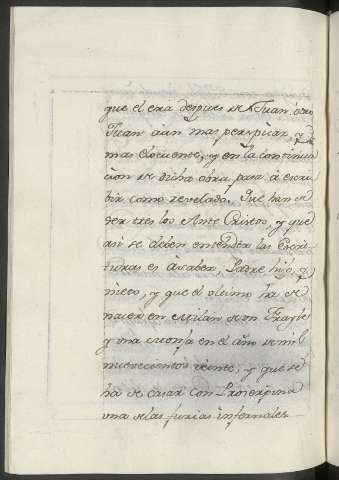 que el era despues de S. Juan otro
Juan aun mas perspicaz, y
mas eloquente, y en la continua
cion de dicha obra pasa á escri
bir como revelado, Que han de
ser tres los Ante Cristos, y que
asi se deben entender las Escri
turas es á saber, Padre hijo, y
nieto, y que el ultimo ha de
nacer en Milan de vn Frayle
y vna Monja en el año de mil
nuevecientos veinte, y que se
ha de casar con Proserpina
vna de las furias infernales